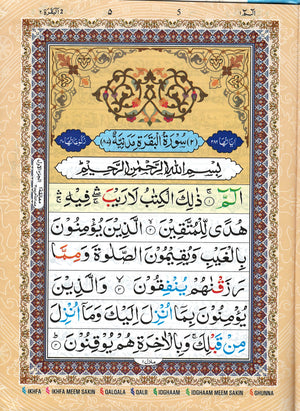 ٥ 5
(٢) سُوْرَةُ الْبَقَرَةِ مَدَنِيَّةٌ (٨٧)
بِسْمِ اللّٰهِ الرَّحْمٰنِ الرَّحِيْمِ
الٓمّٓ ۚ ذٰلِكَ الْكِتٰبُ لَا رَيْبَ ۛ فِيْهِ ۛ
هُدًى لِّلْمُتَّقِيْنَ ۙ الَّذِيْنَ يُؤْمِنُوْنَ
بِالْغَيْبِ وَيُقِيْمُوْنَ الصَّلٰوةَ وَمِمَّا
رَزَقْنٰهُمْ يُنْفِقُوْنَ ۙ وَالَّذِيْنَ
يُؤْمِنُوْنَ بِمَاۤ اُنْزِلَ اِلَيْكَ وَمَاۤ اُنْزِلَ
مِنْ قَبْلِكَ ۚ وَبِالْاٰخِرَةِ هُمْ يُوْقِنُوْنَ
IKHFA IKHFA MEEM SAKIN QALQALA QALB IDGHAAM IDGHAAM MEEM SAKIN GHUNNA